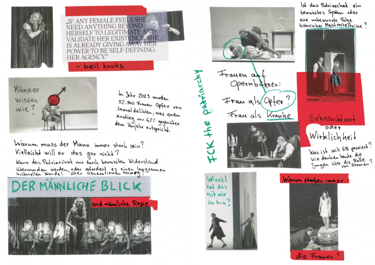 „IF ANY FEMALE FEELS SHE
NEED ANYTHING BEYOND
HERSELF TO LEGITIMATE AND
VALIDATE HER EXISTENCE, SHE
IS ALREADY GIVING AWAY HER
POWER TO BE SELF-DEFINING,
HER AGENCY."
- bell hooks
Männer
wissen
wie?
Im Jahr 2023 wurden
52.300 Frauen Opfer von
Anstieg von 6,2% gegenüber
dem Vorjahr entspricht.
Warum muss der Mann immer stark sein?
Vielleicht will er das gar nicht?
Kann das Patriarchat nur durch bewussten Widerstand
überwunden werden, oder erfordert es einen langsamen
kulturellen Wandel über Generationen hinweg?
DER MÄNNLICHE BLICK
und männliche Regie
FCK the patriarchy
Ist das Patriarchat ein
bewusstes System oder
eine unbewusste Folge
historischer Machtverhältnisse?
Frauen auf
Opernbühnen:
Frau als Opfer?
Frau als Kranke
Sehnsuchtsort
oder
Wirklichkeit
Was ist mit 68 passiert?
Wie denken heute die
Jungen über die Rolle
der Frauen?
Wieviel
hat das
mit mir
zu tun?
Warum sterben immer
die Frauen?